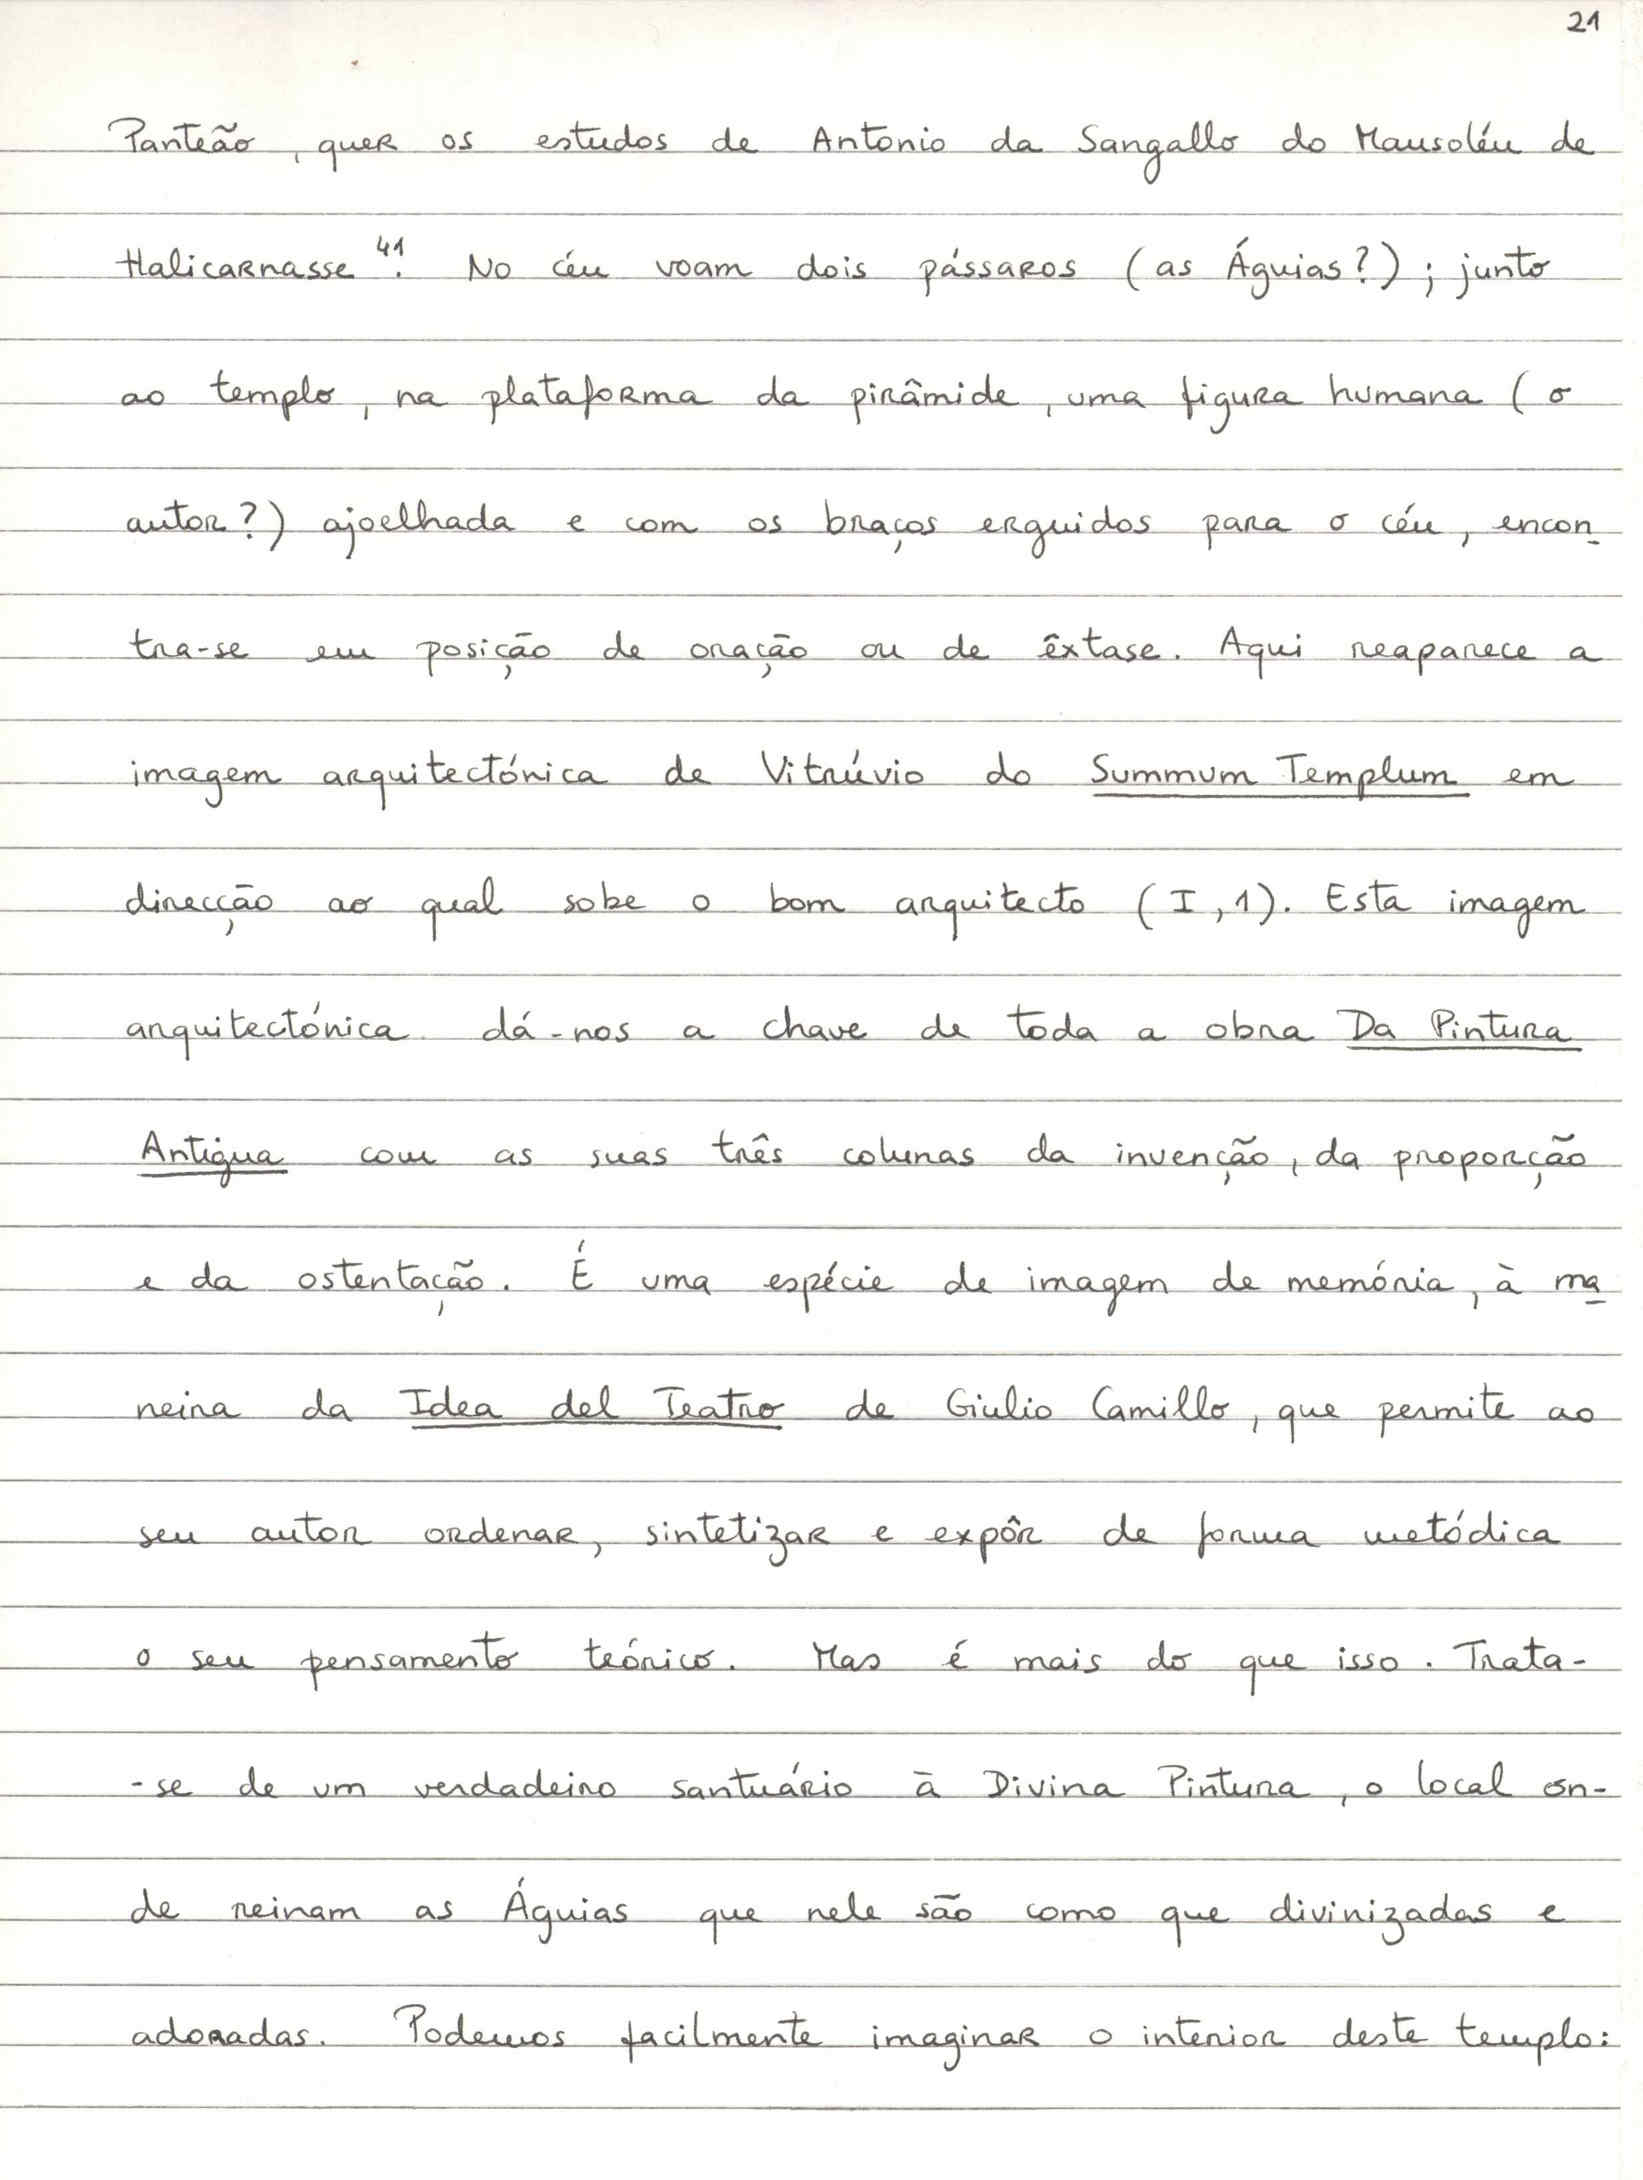 21
Panteão, quer os estudos de Antonio da Sangallo do Mausoléu de
Halicarnasse 41. No céu voam dois pássaros (as Águias?); junto
ao templo, na plataforma da pirâmide, uma figura humana (o
autor?) ajoelhada e com os braços erguidos para o céu, encon
tra-se em posição de oração ou de êxtase. Aqui reaparece a
imagem arquitectónica de Vitrúvio do Summum Templum em
direcção ao qual sobe o bom arquitecto (I,1). Esta imagem
arquitectónica dá-nos a chave de toda a obra Da Pintura
Antigua com as suas três colunas da invenção, da proporção
e da ostentação. É uma espécie de imagem de memória, à ma
neira da Idea del Teatro de Giulio Camillo, que permite ao
seu autor ordenar, sintetizar e expôr de forma metódica
o seu pensamento teórico. Mas é mais do que isso. Trata-
-se de um verdadeiro santuário à Divina Pintura, o local on-
de reinam as Águias que nele são como que divinizadas e
adoradas. Podemos facilmente imaginar o interior deste templo: